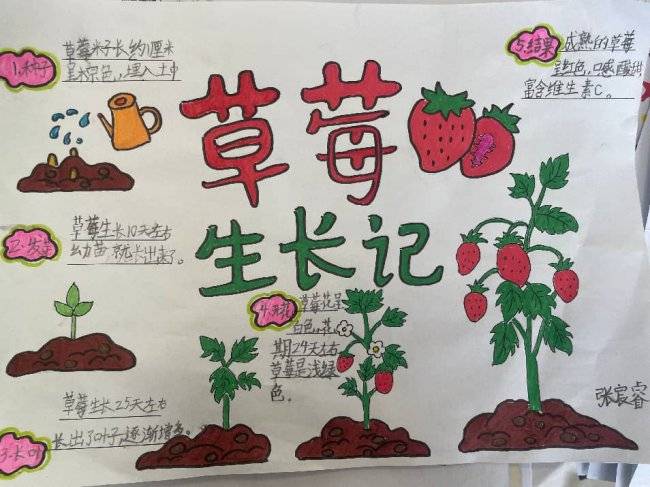 草莓
生长记
1.种子
草莓籽子长约1厘米
呈棕色，埋入土中
2.发芽
草莓生长10天左右
幼苗就长出来了。
3.长叶
草莓生长25天左右
长出了叶子，逐渐增多。
4.开花
草莓花呈
白色，花
期24天左右
草莓是浅绿
色。
5.结果
成熟的草莓
呈红色，口感酸甜
富含维生素C。
张宸睿